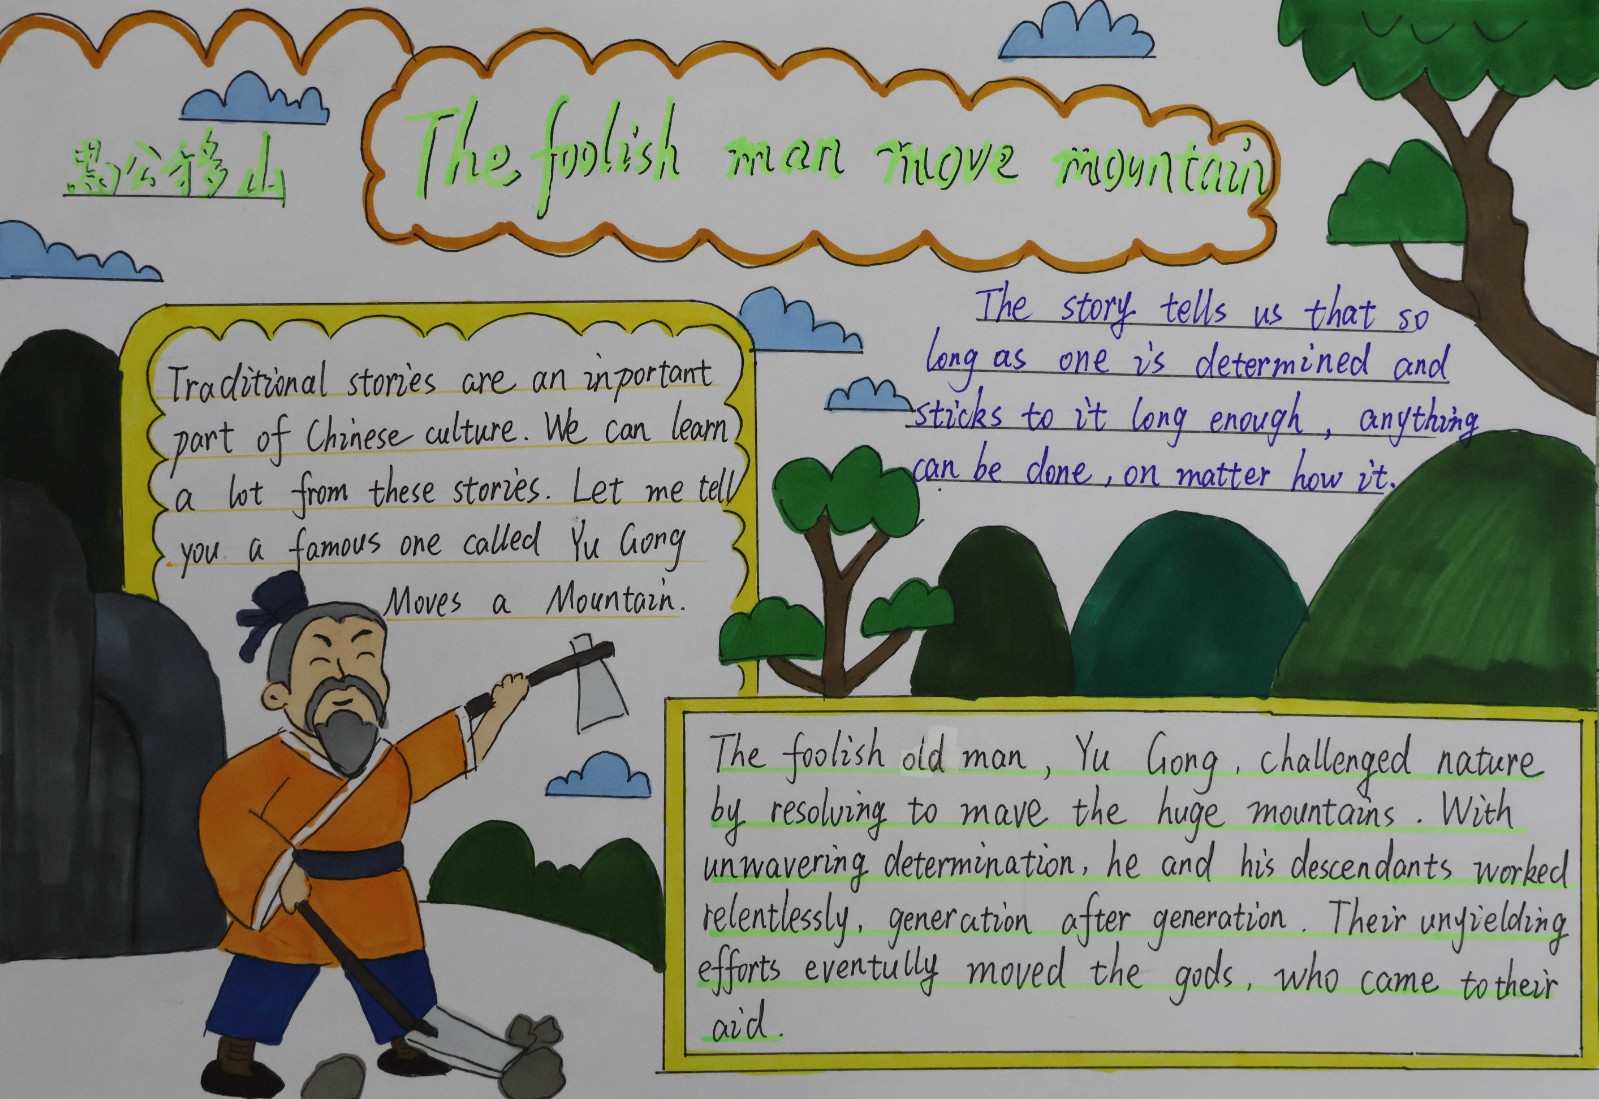 愚公移山
The foolish man move mountain
Traditional stories are an inportant
part of Chinese culture. We can learn
a lot from these stories. Let me tell
you a famous one called Yu Gong
Moves a Mountain.
The story tells us that so
long as one is determined and
sticks to it long enough, anything
can be done, on matter how it.
The foolish old man, Yu Gong, challenged nature
by resolving to mave the huge mountains. With
unwavering determination, he and his descendants worked
relentlessly, generation after generation. Their unyielding
efforts eventully moved the gods, who came to their
aid.